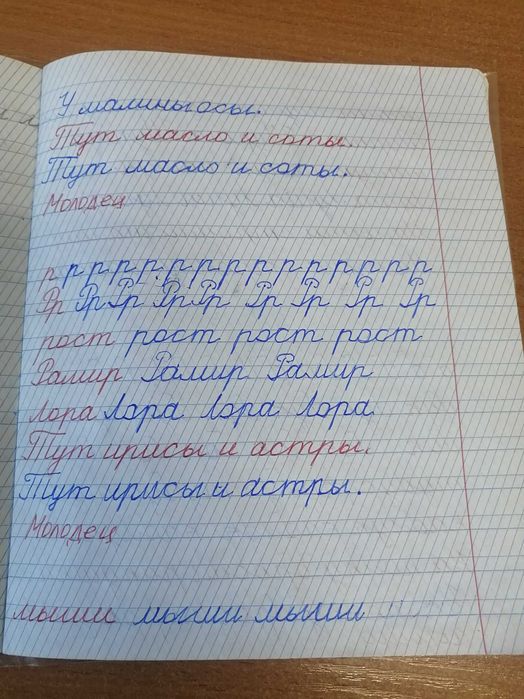 У малины осы.
Тут масло и соты.
Тут масло и соты.
Молодец
р р р р р р р р р р р р р р
Рр Рр Рр Рр Рр Рр Рр Рр Рр
рост рост рост рост
Рамир Рамир Рамир
Лора Лора Лора Лора
Тут ирисы и астры.
Тут ирисы и астры.
Молодец
мыши мыши мыши